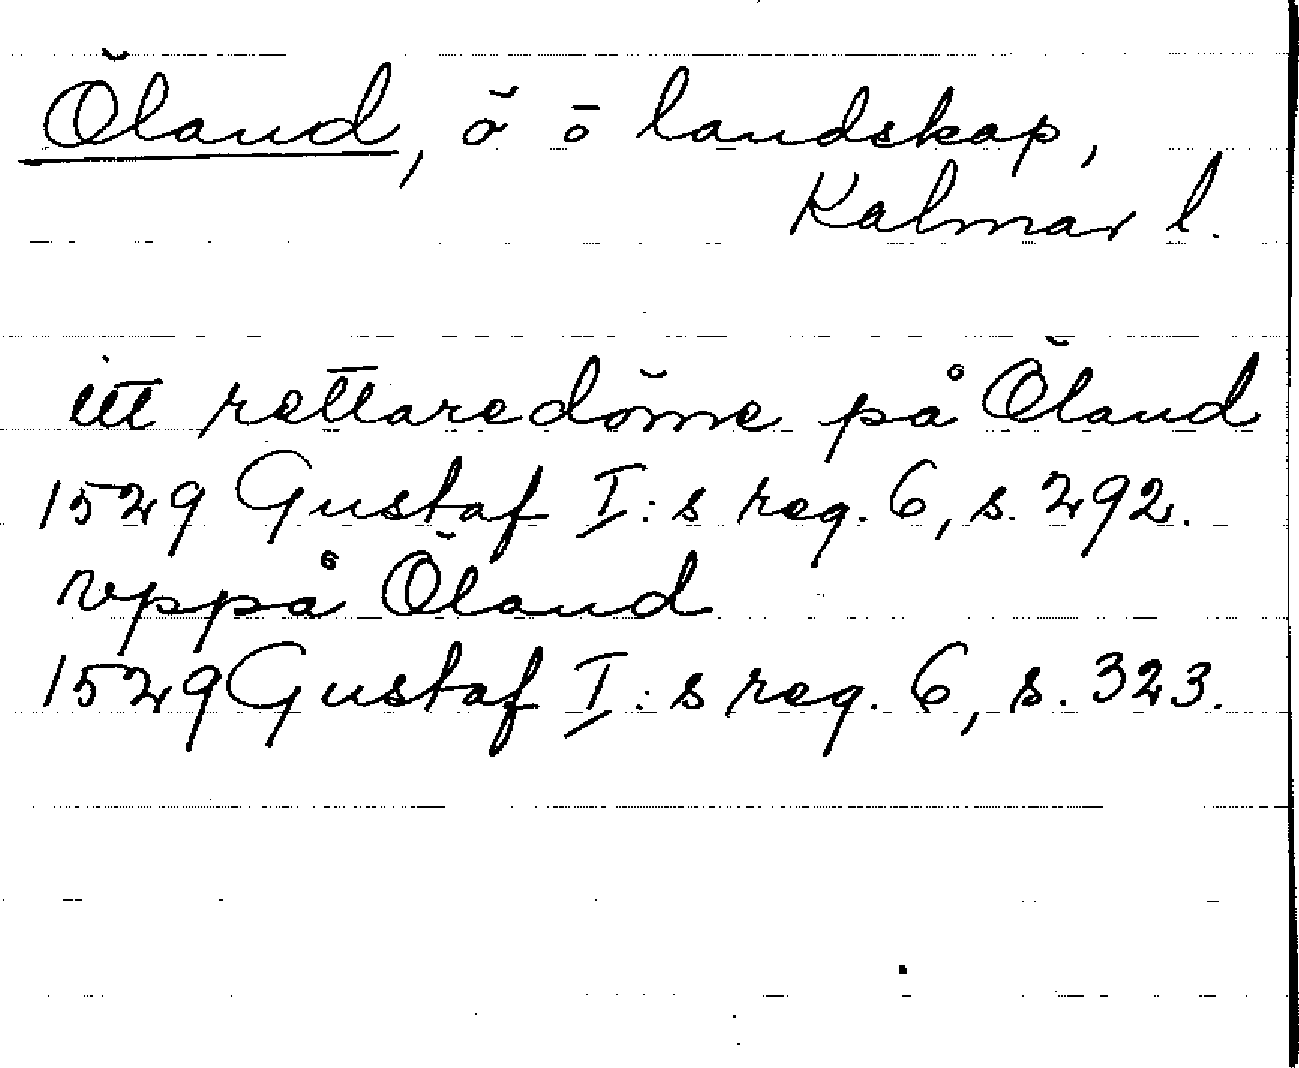 Öland, ö o landskap,
Kalmar l.
itt rettaredöme på Öland
1529 Gustaf I:s reg. 6, s. 292.
vppå Öland
1529 Gustaf I:s reg. 6, s. 323.